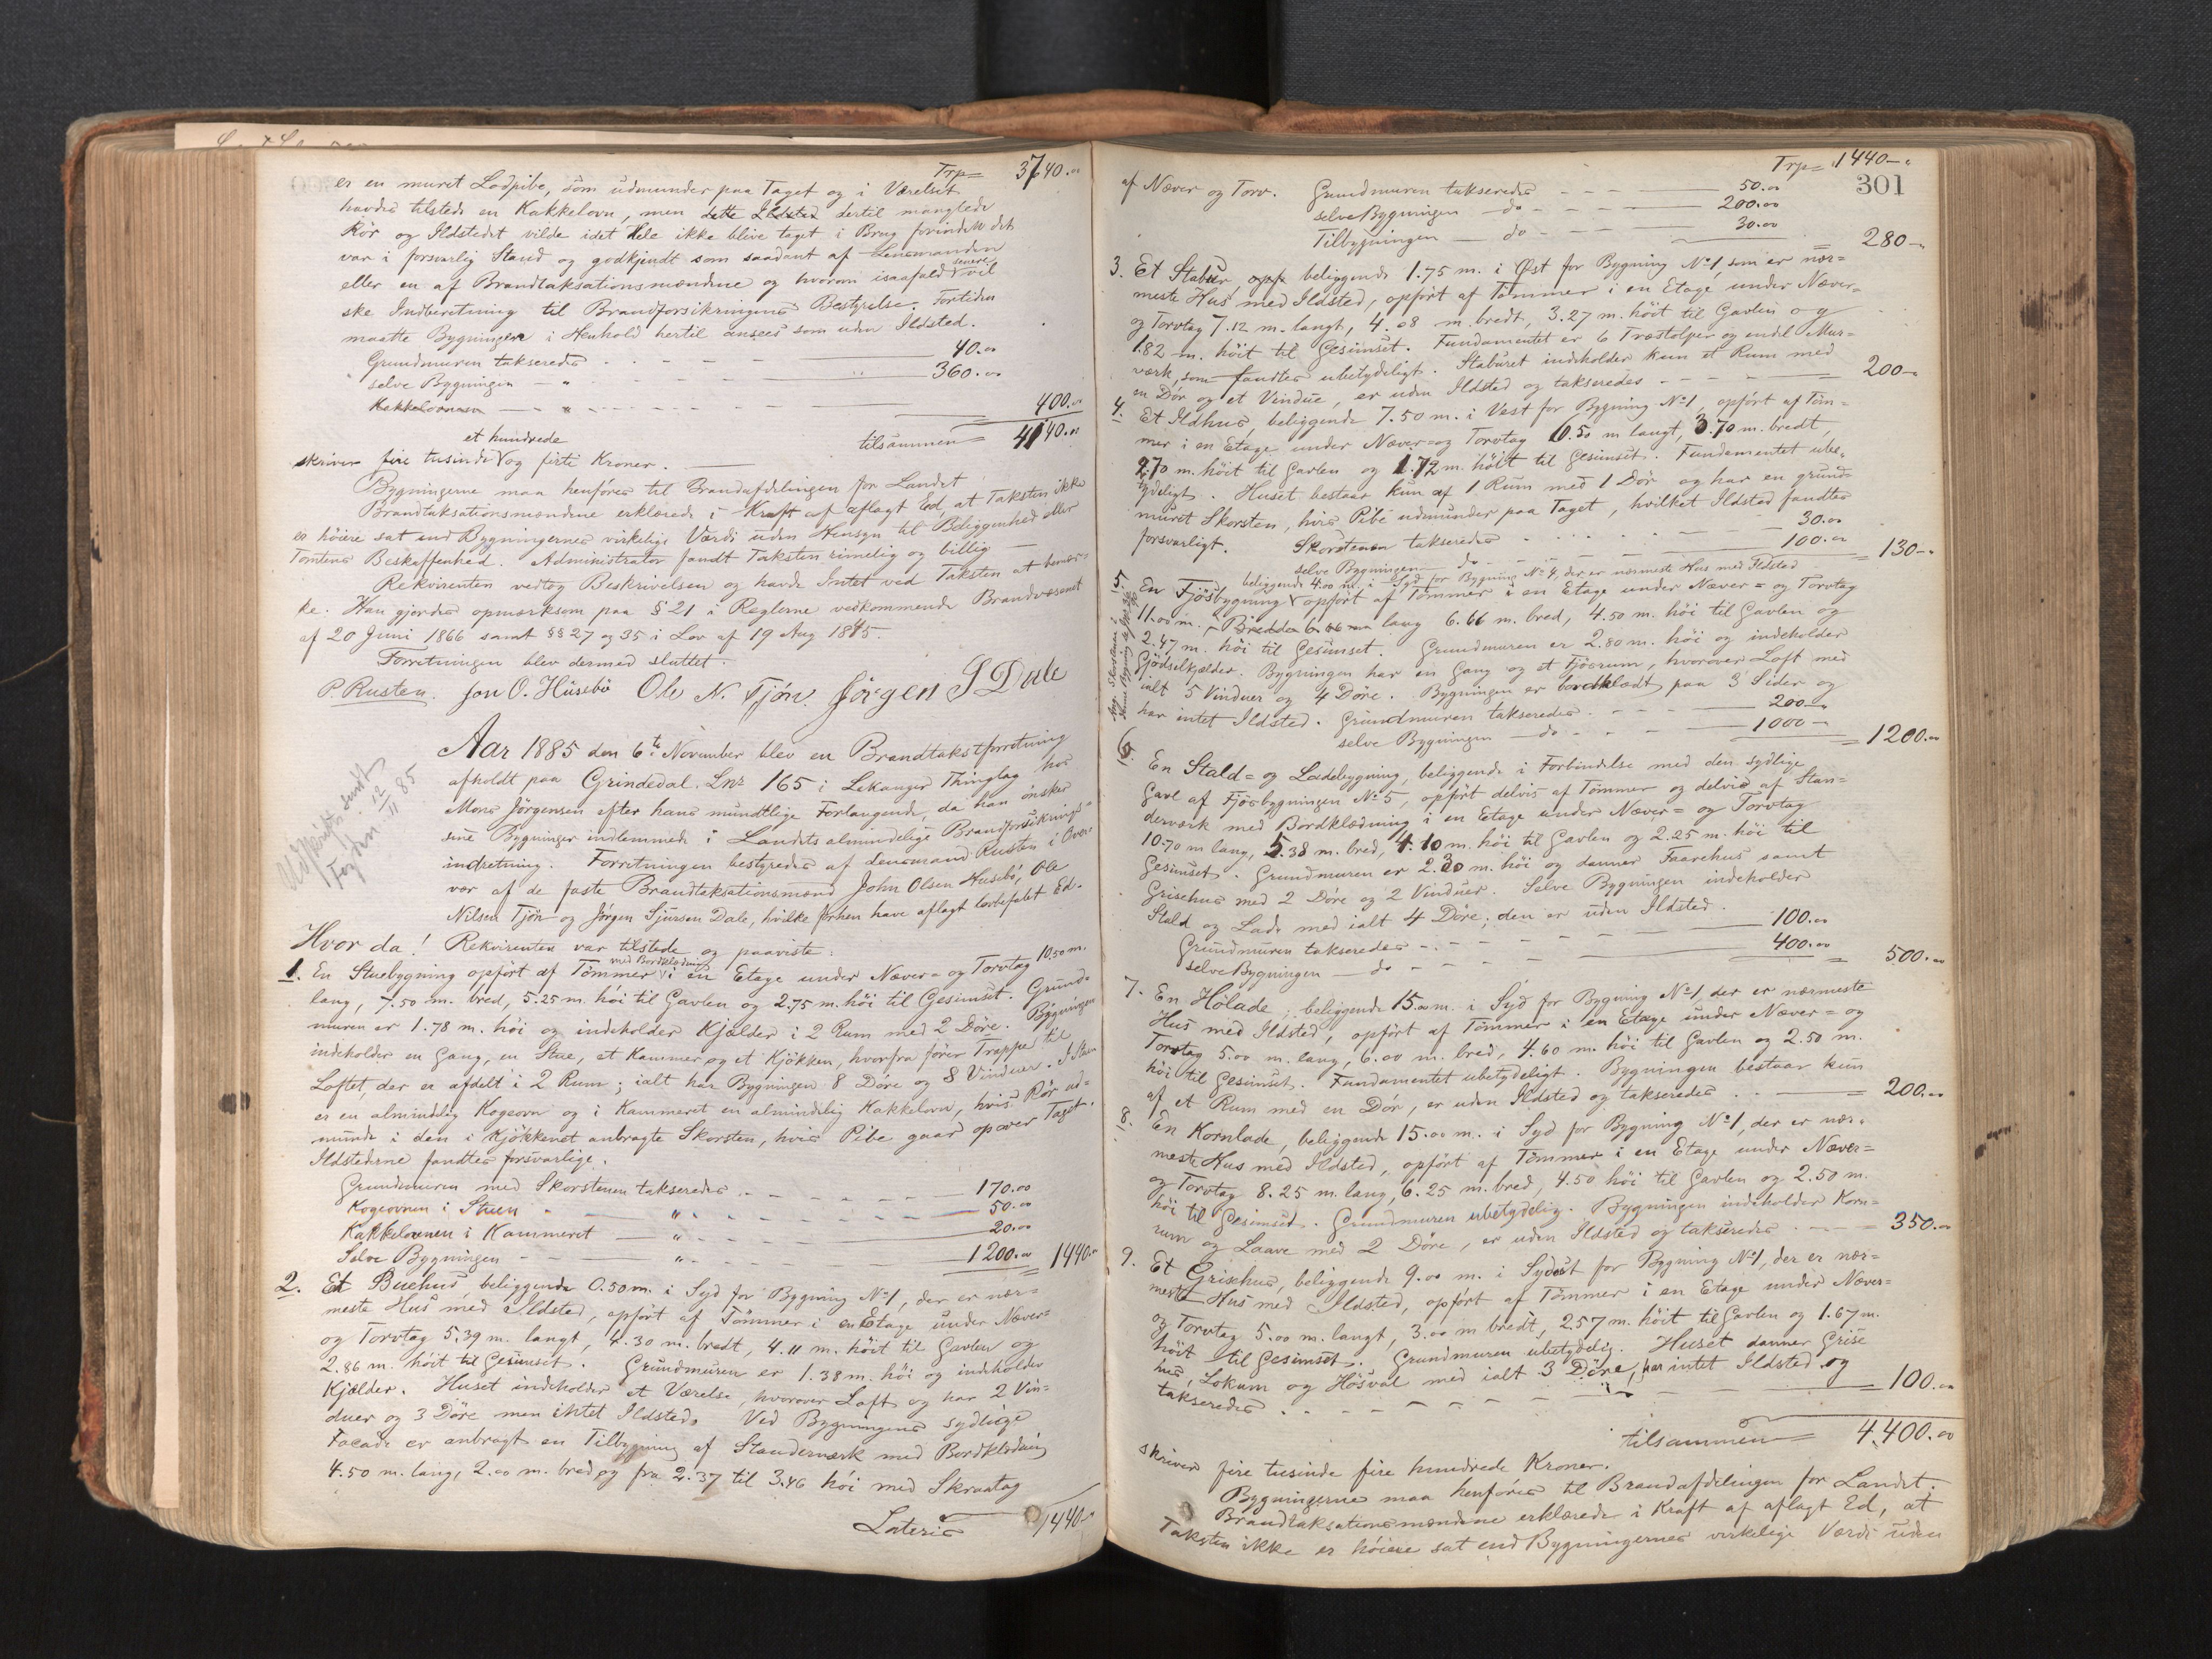 Trp= 3740.00
er en muret Lodpibe, som udmunder paa Taget og i Værelset
havdes tilstede en Kakkelovn, men dette Ildsted dertil manglede
Rör og Ildstedet vilde idet Hele ikke blive taget i Brug forinden det
var i forsvarlig Stand og godkjendt som saadant af Lensmanden
eller en af Brandtaksationsmændene og hvorom isaafald senere vil
ske Indberetning til Brandforsikringens Bestyrelse. Fortiden
maatte Bygningen i Henhold hertil ansees som uden Ildsted.
Grundmuren takseredes 40.00
selve Bygningen - " 360.00
Kakkelovnen - " 400.00
tilsammen = 4140.00
et hundrede
skriver fire tusinde og firti Kroner.
Bygningerne maa henföres til Brandafdelingen for Landet
Brandtaksationsmændene erklærede i Kraft af aflagt Ed, at Taksten ikke
er höiere sat end Bygningernes virkelige Værdi uden Hensyn til Beliggenhed eller
Tomtens Beskaffenhed. Administrator fandt Taksten rimelig og billig
Rekvirenten vedtog Beskrivelsen og havde Intet ved Taksten at bemær=
ke. Han gjordes opmærksom paa § 21 i Reglerne vedkommende Brandvæsenet
af 20 Juni 1866 samt §§ 27 og 35 i Lov af 19 Aug 1845.
Forretningen blev dermed sluttet.
P. Rusten. Jon O. Husebö Ole N. Tjön. Jörgen S Dale
Aar 1885 den 6te November blev en Brandtakstforretning
afholdt paa Grindedal Lnr 165 i Lekanger Thinglag hos
Mons Jörgensen efter hans mundtlige Forlangende, da han önsker
sine Bygninger indlemmede i Landets almindelige Brandforsikrings=
indretning. Forretningen bestyredes af Lensmand Rusten i Over=
vær af de faste Brandtaksationsmænd John Olsen Husebö, Ole
Nilsen Tjön og Jörgen Sjursen Dale, hvilke förhen have aflagt lovbefalet Ed.
Udskrift sendt
Fogden 12/11 85
Hvor da! Rekvirenten var tilstede og paaviste:
1. En Stuebygning opfört af Tömmer med Bordklædning i en Etage under Næver= og Torvtag 10.50 m.
lang, 7.50 m. bred, 5.25 m. höi til Gavlen og 2.75 m. höi til Gesimset. Grund=
muren er 1.78 m. höi og indeholder Kjælder i 2 Rum med 2 Döre. Bygningen
indeholder en Gang, en Stue, et Kammer og et Kjökken, hvorfra förer Trappe til
Loftet, der er afdelt i 2 Rum; ialt har Bygningen 8 Döre og 8 Vinduer. I Stuen
er en almindelig Kogeovn og i Kammeret en almindelig Kakkelovn, hvis Rör ud=
munde i den i Kjökkenet anbragte Skorsten, hvis Pibe gaar op over Taget.
Ildstederne fandtes forsvarlige.
Grundmuren med Skorstenen takseredes 170.00
Kogeovnen i Stuen " 50.00
Kakkelovnen i Kammeret " 20.00
Selve Bygningen " 1200.00 = 1440.00
2. Et Buehus, beliggende 0.50 m. i Syd for Bygning No 1, der er nær=
meste Hus med Ildsted, opfört af Tömmer i en Etage under Næver=
og Torvtag 5.39 m. langt, 4.30 m. bredt, 4.11 m. höit til Gavlen og
2.86 m. höit til Gesimset. Grundmuren er 1.38 m. höi og indeholder
Kjælder. Huset indeholder et Værelse, hvorover Loft og har 2 Vin=
duer og 3 Döre men intet Ildsted. Ved Bygningens sydlige
Facade er anbragt en Tilbygning af Standerværk med Bordklædning
4.50 m. lang, 2.00 m. bred og fra 2.37 til 3.46 höi med Skraatag
Lateris 1440.
Trp= 1440-
301
af Næver og Torv. Grundmuren takseredes 50.00
selve Bygningen do 200.00
Tilbygningen do 30.00
= 280-
3. Et Stabur, beliggende 1.75 m. i Øst for Bygning No 1, som er nær=
meste Hus med Ildsted, opfört af Tömmer i en Etage under Næver=
og Torvtag 7.12 m. langt, 4.08 m. bredt, 3.27 m. höit til Gavlen og
1.82 m. höit til Gesimset. Fundamentet er 6 Træstolper og endel Mur=
værk, som fandtes ubetydeligt. Staburet indeholder kun et Rum med
en Dör og et Vindue, er uden Ildsted og takseredes = 200-
4. Et Ildhus, beliggende 7.50 m. i Vest for Bygning No 1, opfört af Töm=
mer i en Etage under Næver= og Torvtag 6.50 m langt, 3.70 m. bredt,
2.70 m. höit til Gavlen og 1.72 m. höit til Gesimset. Fundamentet ube=
tydeligt. Huset bestaar kun af 1 Rum med 1 Dör og har en grund=
muret Skorsten, hvis Pibe udmunder paa Taget, hvilket Ildsted fandtes
forsvarligt. Skorstenen takseredes 30.00
selve Bygningen do 100.00 = 130-
5. En Fjösbygning beliggende 4.00 m. i Syd for Bygning No 4, der er nærmeste Hus med Ildsted opfört af Tömmer i en Etage under Næver= og Torvtag
11.00 m. lang 6.66 m. bred, 4.50 m. höi til Gavlen og
2.47 m. höi til Gesimset. Grundmuren er 2.80 m. höi og indeholder
Gjödselkjælder. Bygningen har en Gang og et Fjösrum, hvorover Loft med
ialt 5 Vinduer og 4 Döre. Bygningen er bordklædt paa 3 Sider og
har intet Ildsted. Grundmuren takseredes 200-
selve Bygningen do 1000-
= 1200.00
6. En Stald= og Ladebygning, beliggende i Forbindelse med den sydlige
Gavl af Fjösbygningen No 5, opfört delvis af Tömmer og delvis af Stan=
derværk med Bordklædning i en Etage under Næver= og Torvtag
10.70 m lang, 5.38 m. bred, 4.10 m. höi til Gavlen og 2.25 m. höi til
Gesimset. Grundmuren er 2.30 m. höi og danner Faarehus samt
Grisehus med 2 Döre og 2 Vinduer. Selve Bygningen indeholder
Stald og Lade med ialt 4 Döre; den er uden Ildsted.
Grundmuren takseredes 100.00
selve Bygningen do 400.00 = 500.00
7. En Hölade, beliggende 15.00 m. i Syd for Bygning No 1, der er nærmeste
Hus med Ildsted, opfört af Tömmer i en Etage under Næver= og
Torvtag 5.00 m. lang, 6.00 m. bred, 4.60 m. höi til Gavlen og 2.50 m.
höi til Gesimset. Fundamentet ubetydeligt. Bygningen bestaar kun
af et Rum med en Dör, er uden Ildsted og takseredes = 200.00
8. En Kornlade, beliggende 15.00 m. i Syd for Bygning No 1, der er nær=
meste Hus med Ildsted, opfört af Tömmer i en Etage under Næver=
og Torvtag 8.25 m. lang, 6.25 m. bred, 4.50 höi til Gavlen og 2.50 m.
höi til Gesimset. Grundmuren ubetydelig. Bygningen indeholder Korn=
rum og Laave med 2 Döre, er uden Ildsted og takseredes = 350.00
9. Et Grisehus, beliggende 9.00 m. i Sydöst for Bygning No 1, der er nær=
meste Hus med Ildsted, opfört af Tömmer i en Etage under Næver=
og Torvtag 5.00 m. langt, 3.00 m bredt, 2.57 m. höit til Gavlen og 1.67 m.
höit til Gesimset. Grundmuren ubetydelig. Huset danner Grise
hus, Lokum og Hösval med ialt 3 Döre, har intet Ildsted og
takseredes = 100.00
tilsammen = 4.400.00
skriver fire tusinde fire hundrede Kroner.
Bygningerne maa henföres til Brandafdelingen for Landet.
Brandtaksationsmændene erklærede i Kraft af aflagt Ed, at
Taksten ikke er höiere sat end Bygningernes virkelige Værdi uden